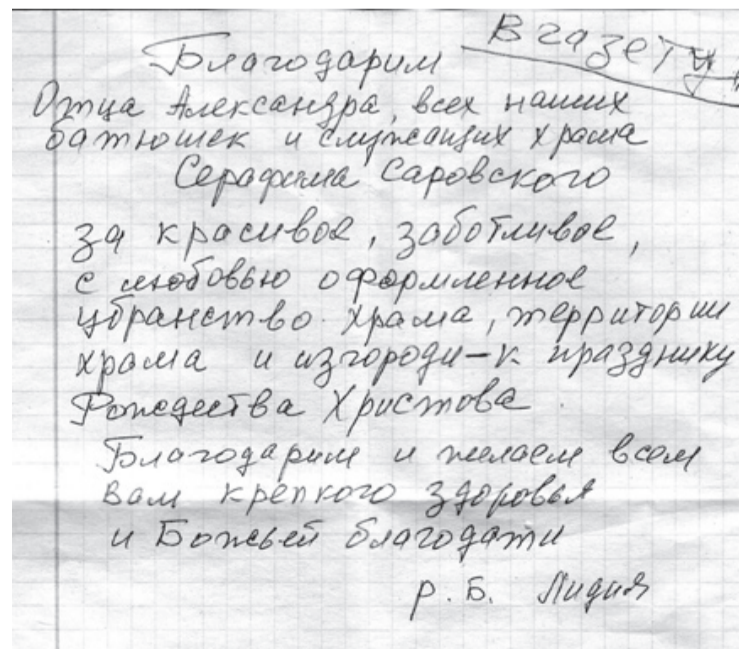 В газету
Благодарим
Отца Александра, всех наших
батюшек и служащих храма
Серафима Саровского
за красивое, заботливое,
с любовью оформленное
убранство храма, территории
храма и изгороди - к празднику
Рождества Христова.
Благодарим и желаем всем
вам крепкого здоровья
и Божьей благодати
р. Б. Лидия